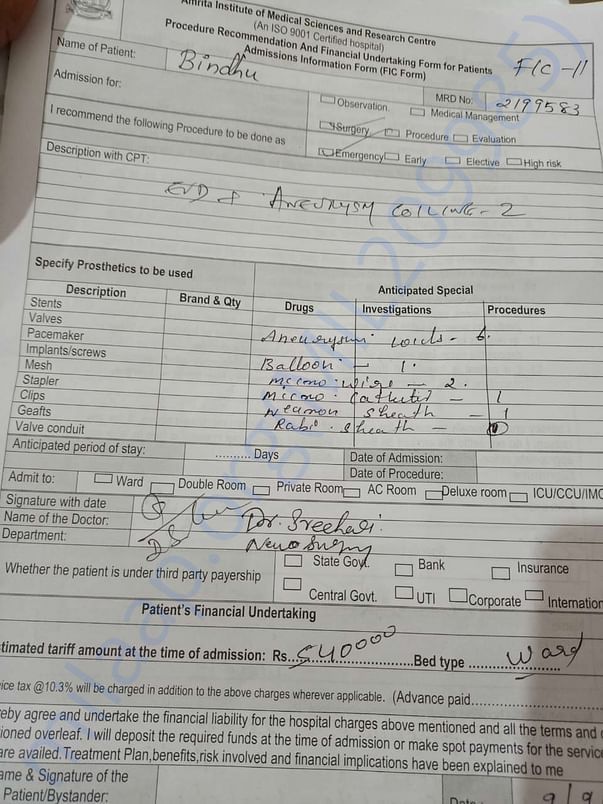 Amrita Institute of Medical Sciences and Research Centre
(An ISO 9001 Certified hospital)
Procedure Recommendation And Financial Undertaking Form for Patients
Admissions Information Form (FIC Form)
FIC-11
Name of Patient: Bindhu
MRD No: 2199583
Admission for: Observation. Medical Management
Surgery Procedure Evaluation
I recommend the following Procedure to be done as
Emergency Early Elective High risk
Description with CPT:
EVD & Aneurysm coiling - 2
Specify Prosthetics to be used
Anticipated Special
Description Brand & Qty Drugs Investigations Procedures
Stents
Valves
Pacemaker Aneurysm coils - 6.
Implants/screws
Mesh Balloon - 1.
Stapler Micro wire - 2.
Clips Micro catheter - 1
Geafts sheath - 1
Valve conduit sheath -
Anticipated period of stay: .......... Days Date of Admission:
Date of Procedure:
Admit to: Ward Double Room Private Room AC Room Deluxe room ICU/CCU/IMC
Signature with date
Name of the Doctor: Dr. Sreehari.
Department: Neurosurgery
Whether the patient is under third party payership
State Govt. Bank Insurance
Central Govt. UTI Corporate Internation
Patient's Financial Undertaking
stimated tariff amount at the time of admission: Rs. 540000 Bed type ward
ice tax @10.3% will be charged in addition to the above charges wherever applicable. (Advance paid
reby agree and undertake the financial liability for the hospital charges above mentioned and all the terms and
ioned overleaf. I will deposit the required funds at the time of admission or make spot payments for the service
are availed.Treatment Plan,benefits,risk involved and financial implications have been explained to me
ame & Signature of the
Patient/Bystander:
9/9